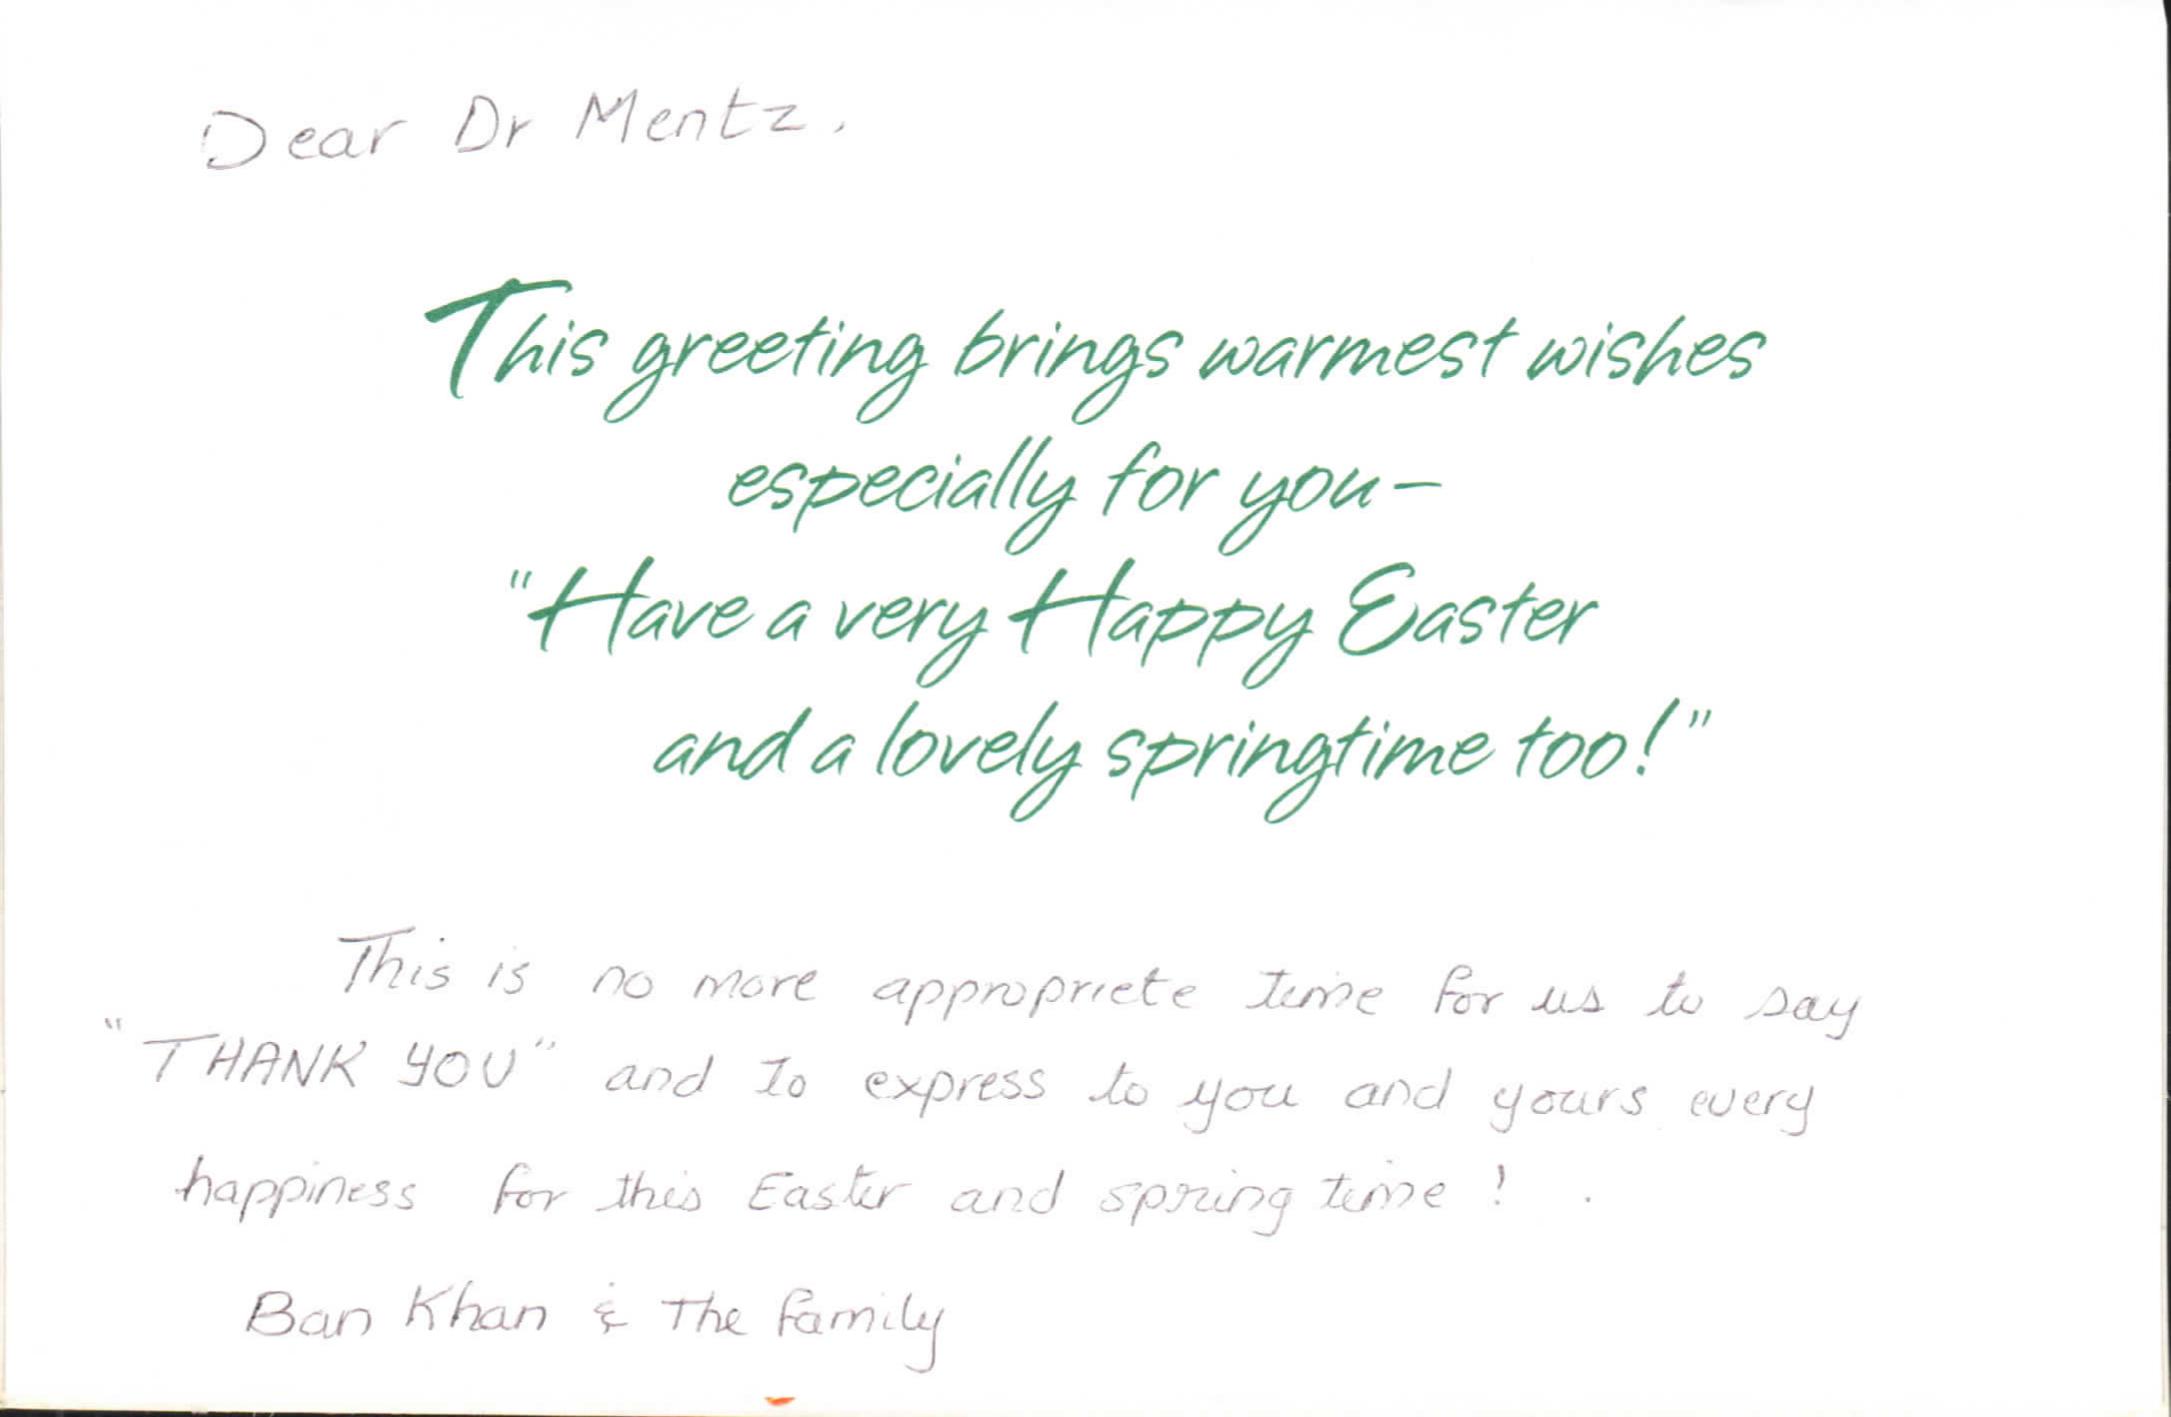 Dear Dr Mentz,
This greeting brings warmest wishes
especially for you—
"Have a very Happy Easter
and a lovely springtime too!"
This is no more appropriete time for us to say
"THANK YOU" and to express to you and yours every
happiness for this Easter and spring time !
Ban Khan & The family